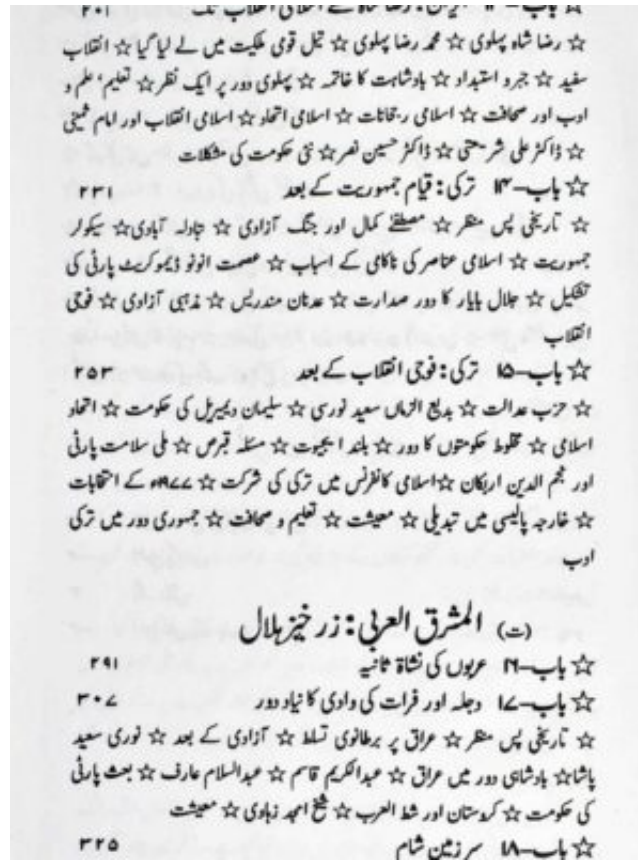 ☆ باب–۱۳ ایران: رضا شاہ سے اسلامی انقلاب تک ۲۰۱
☆ رضا شاہ پہلوی ☆ محمد رضا پہلوی ☆ تیل قومی ملکیت میں لے لیا گیا ☆ انقلاب
سفید ☆ جبر و استبداد ☆ بادشاہت کا خاتمہ ☆ پہلوی دور پر ایک نظر ☆ تعلیم، علم و
ادب اور صحافت ☆ اسلامی رجحانات ☆ اسلامی اتحاد ☆ اسلامی انقلاب اور امام خمینی
☆ ڈاکٹر علی شریعتی ☆ ڈاکٹر حسین نصر ☆ نئی حکومت کی مشکلات
☆ باب–۱۴ ترکی: قیام جمہوریت کے بعد ۲۳۱
☆ تاریخی پس منظر ☆ مصطفےٰ کمال اور جنگ آزادی ☆ تبادلہ آبادی ☆ سیکولر
جمہوریت ☆ اسلامی عناصر کی ناکامی کے اسباب ☆ عصمت انونو ڈیموکریٹ پارٹی کی
تشکیل ☆ جلال بایار کا دور صدارت ☆ عدنان مندریس ☆ مذہبی آزادی ☆ فوجی
انقلاب
☆ باب–۱۵ ترکی: فوجی انقلاب کے بعد ۲۵۳
☆ حزب عدالت ☆ بدیع الزماں سعید نورسی ☆ سلیمان دیمیریل کی حکومت ☆ اتحاد
اسلامی ☆ مخلوط حکومتوں کا دور ☆ بلند ایجیوت ☆ مسئلہ قبرص ☆ ملی سلامت پارٹی
اور نجم الدین اربکان ☆ اسلامی کانفرنس میں ترکی کی شرکت ☆ ۱۹۷۷ء کے انتخابات
☆ خارجہ پالیسی میں تبدیلی ☆ معیشت ☆ تعلیم و صحافت ☆ جمہوری دور میں ترکی
ادب
(ت) المشرق العربی: زرخیز ہلال
☆ باب–۱۶ عربوں کی نشاۃ ثانیہ ۲۹۱
☆ باب–۱۷ دجلہ اور فرات کی وادی کا نیا دور ۳۰۷
☆ تاریخی پس منظر ☆ عراق پر برطانوی تسلط ☆ آزادی کے بعد ☆ نوری سعید
پاشا ☆ بادشاہی دور میں عراق ☆ عبدالکریم قاسم ☆ عبدالسلام عارف ☆ بعث پارٹی
کی حکومت ☆ کردستان اور شط العرب ☆ شیخ امجد زہاوی ☆ معیشت
☆ باب–۱۸ سرزمین شام ۳۲۵